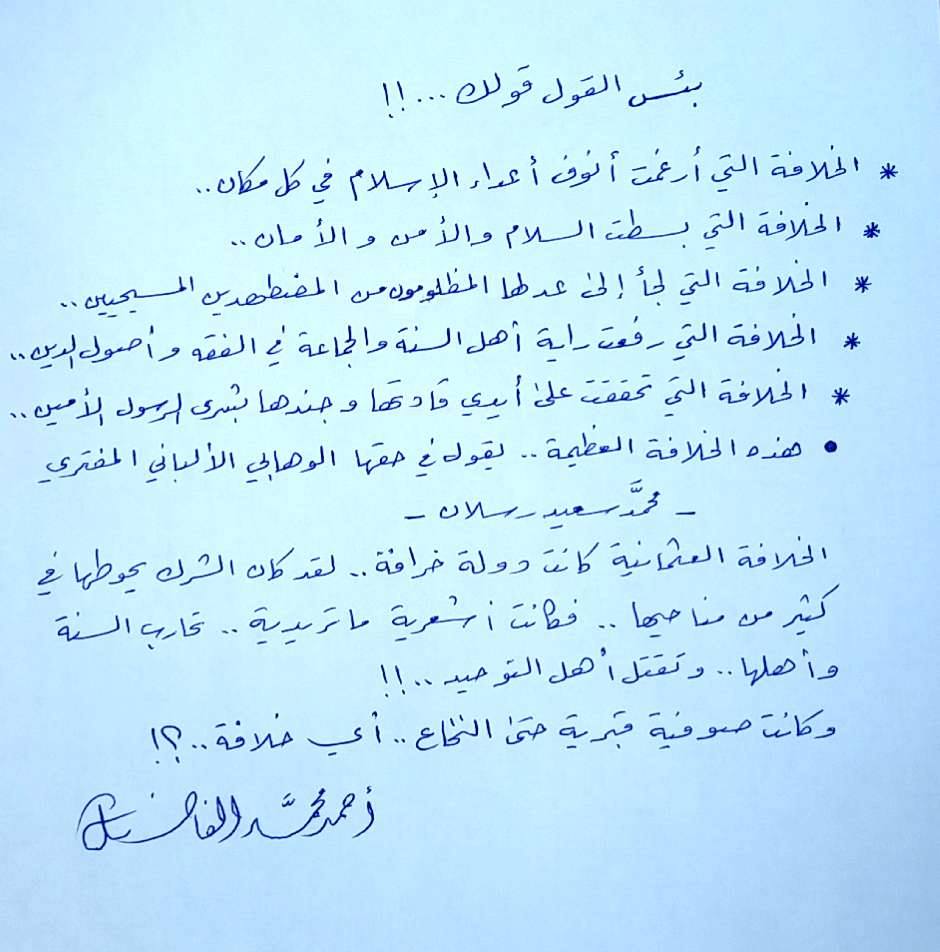 بئس القول قولك ...!!
* الخلافة التي أرغمت أنوف أعداء الإسلام في كل مكان..
* الخلافة التي بسطت السلام والأمن و الأمان..
* الخلافة التي لجأ إلى عدلها المظلومون من المضطهدين المسيحيين..
* الخلافة التي رفعت راية أهل السنة والجماعة في الفقه وأصول الدين..
* الخلافة التي تحققت على أيدي قادتها وجندها بشرى الرسول الأمين..
• هذه الخلافة العظيمة.. يقول في حقها الوهابي الألباني المفتري
- محمَّد سعيد رسلان -
الخلافة العثمانية كانت دولة خرافة.. لقد كان الشرك يحوطها في
كثير من مناحيها.. فكانت أشعرية ماتريدية.. تحارب السنة
وأهلها.. وتقتل أهل التوحيد..!!
وكانت صوفية قبرية حتى النخاع.. أي خلافة..؟!
أحمد محمَّد الفاضل